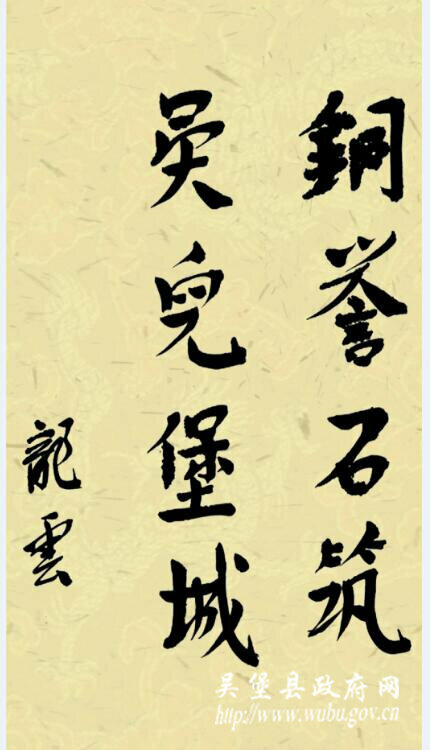 銅誉石筑
吴兒堡城
龍雲
吴堡县政府网
http://www.wubu.gov.cn